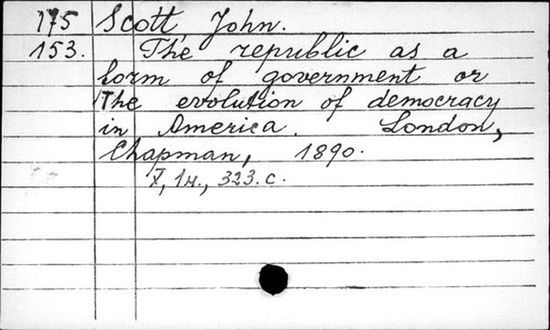 175 Scott John.
153. The republic as a
form of government or
The evolution of democracy
in America. London,
Chapman, 1890.
X, 1н., 323.с.